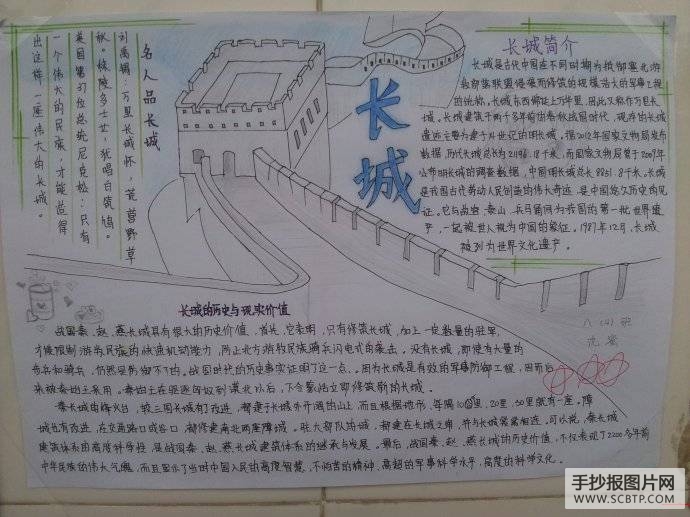 名人品长城
刘禹锡：万里长城怀，荒营野草
秋。秣陵多士女，犹唱白符鸠。
美国第37位总统尼克松：只有
一个伟大的民族，才能造得
出这样一座伟大的长城。
长城
长城简介
长城是古代中国在不同时期为抵御塞北游
牧部落联盟侵袭而修筑的规模浩大的军事工程
的统称。长城东西绵延上万里，因此又称作万里长
城。长城建筑于两千多年前的春秋战国时代，现存的长城
遗迹主要为建于14世纪的明长城。据2012年国家文物局发布
数据，历代长城总长为21196.18千米，而国家文物局曾于2009年
公布明长城的调查数据，中国明长城总长8851.8千米。长城
是我国古代劳动人民创造的伟大奇迹，是中国悠久历史的见
证。它与故宫、泰山、兵马俑同为我国的第一批世界遗
产，一起被世人视为中国的象征。1987年12月，长城
被列为世界文化遗产。
长城的历史与现实价值
战国秦、赵、燕长城具有很大的历史价值。首先，它表明，只有修筑长城，加上一定数量的驻军，
才能限制游牧民族的快速机动能力，防止北方游牧民族骑兵闪电式的袭击。没有长城，即使有大量的
步兵和骑兵，仍然是防御不了的。战国时代的历史事实证明了这一点。因为长城是有效的军事防御工程，因而后
来被秦始皇采用。秦始皇在驱逐匈奴到漠北以后，下令蒙恬立即修筑新的长城。
秦长城的烽火台，较三国长城有了改进，都建于长城外开阔的山上，而且根据地形，每隔10里，20里，30里就有一座。障
城也有改进，在交通路口或谷口，都修建南北两座障城。驻大部队的城，都建在长城之南，并与长城紧紧相连。可以说，秦长城
建筑体系的高度科学性，是战国秦、赵、燕长城建筑体系的继承与发展。最后，战国秦、赵、燕长城的历史价值，不仅表现了2200多年前
中华民族的伟大气魄，而且显示了当时中国人民的高度智慧、不怕苦的精神、高超的军事科学水平，高度的科学文化。
八(4)班
手抄报图片网
WWW.SCBTP.COM